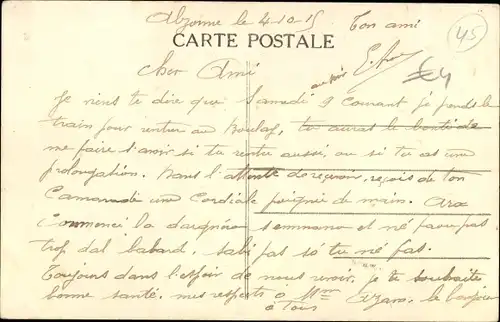 Alzonne le 4-10-15 Ton ami
45
CARTE POSTALE
Cher Ami au soir
Je viens te dire que Samedi 9 Courant je prends le
train pour rentrer au Boulay, tu auras le bonté de
me faire savoir si tu rentre aussi, ou si tu as une
prolongation. Dans l'attente de recevoir, reçois de ton
Camarade une Cordiale poignée de main.
Commencé la semmano et né pas
trop dal labard, sabi pas so tu né fas.
Toujours dans l'espoir de nous revoir, je te souhaite
bonne santé, mes respects à Mme le bonjour
à tous